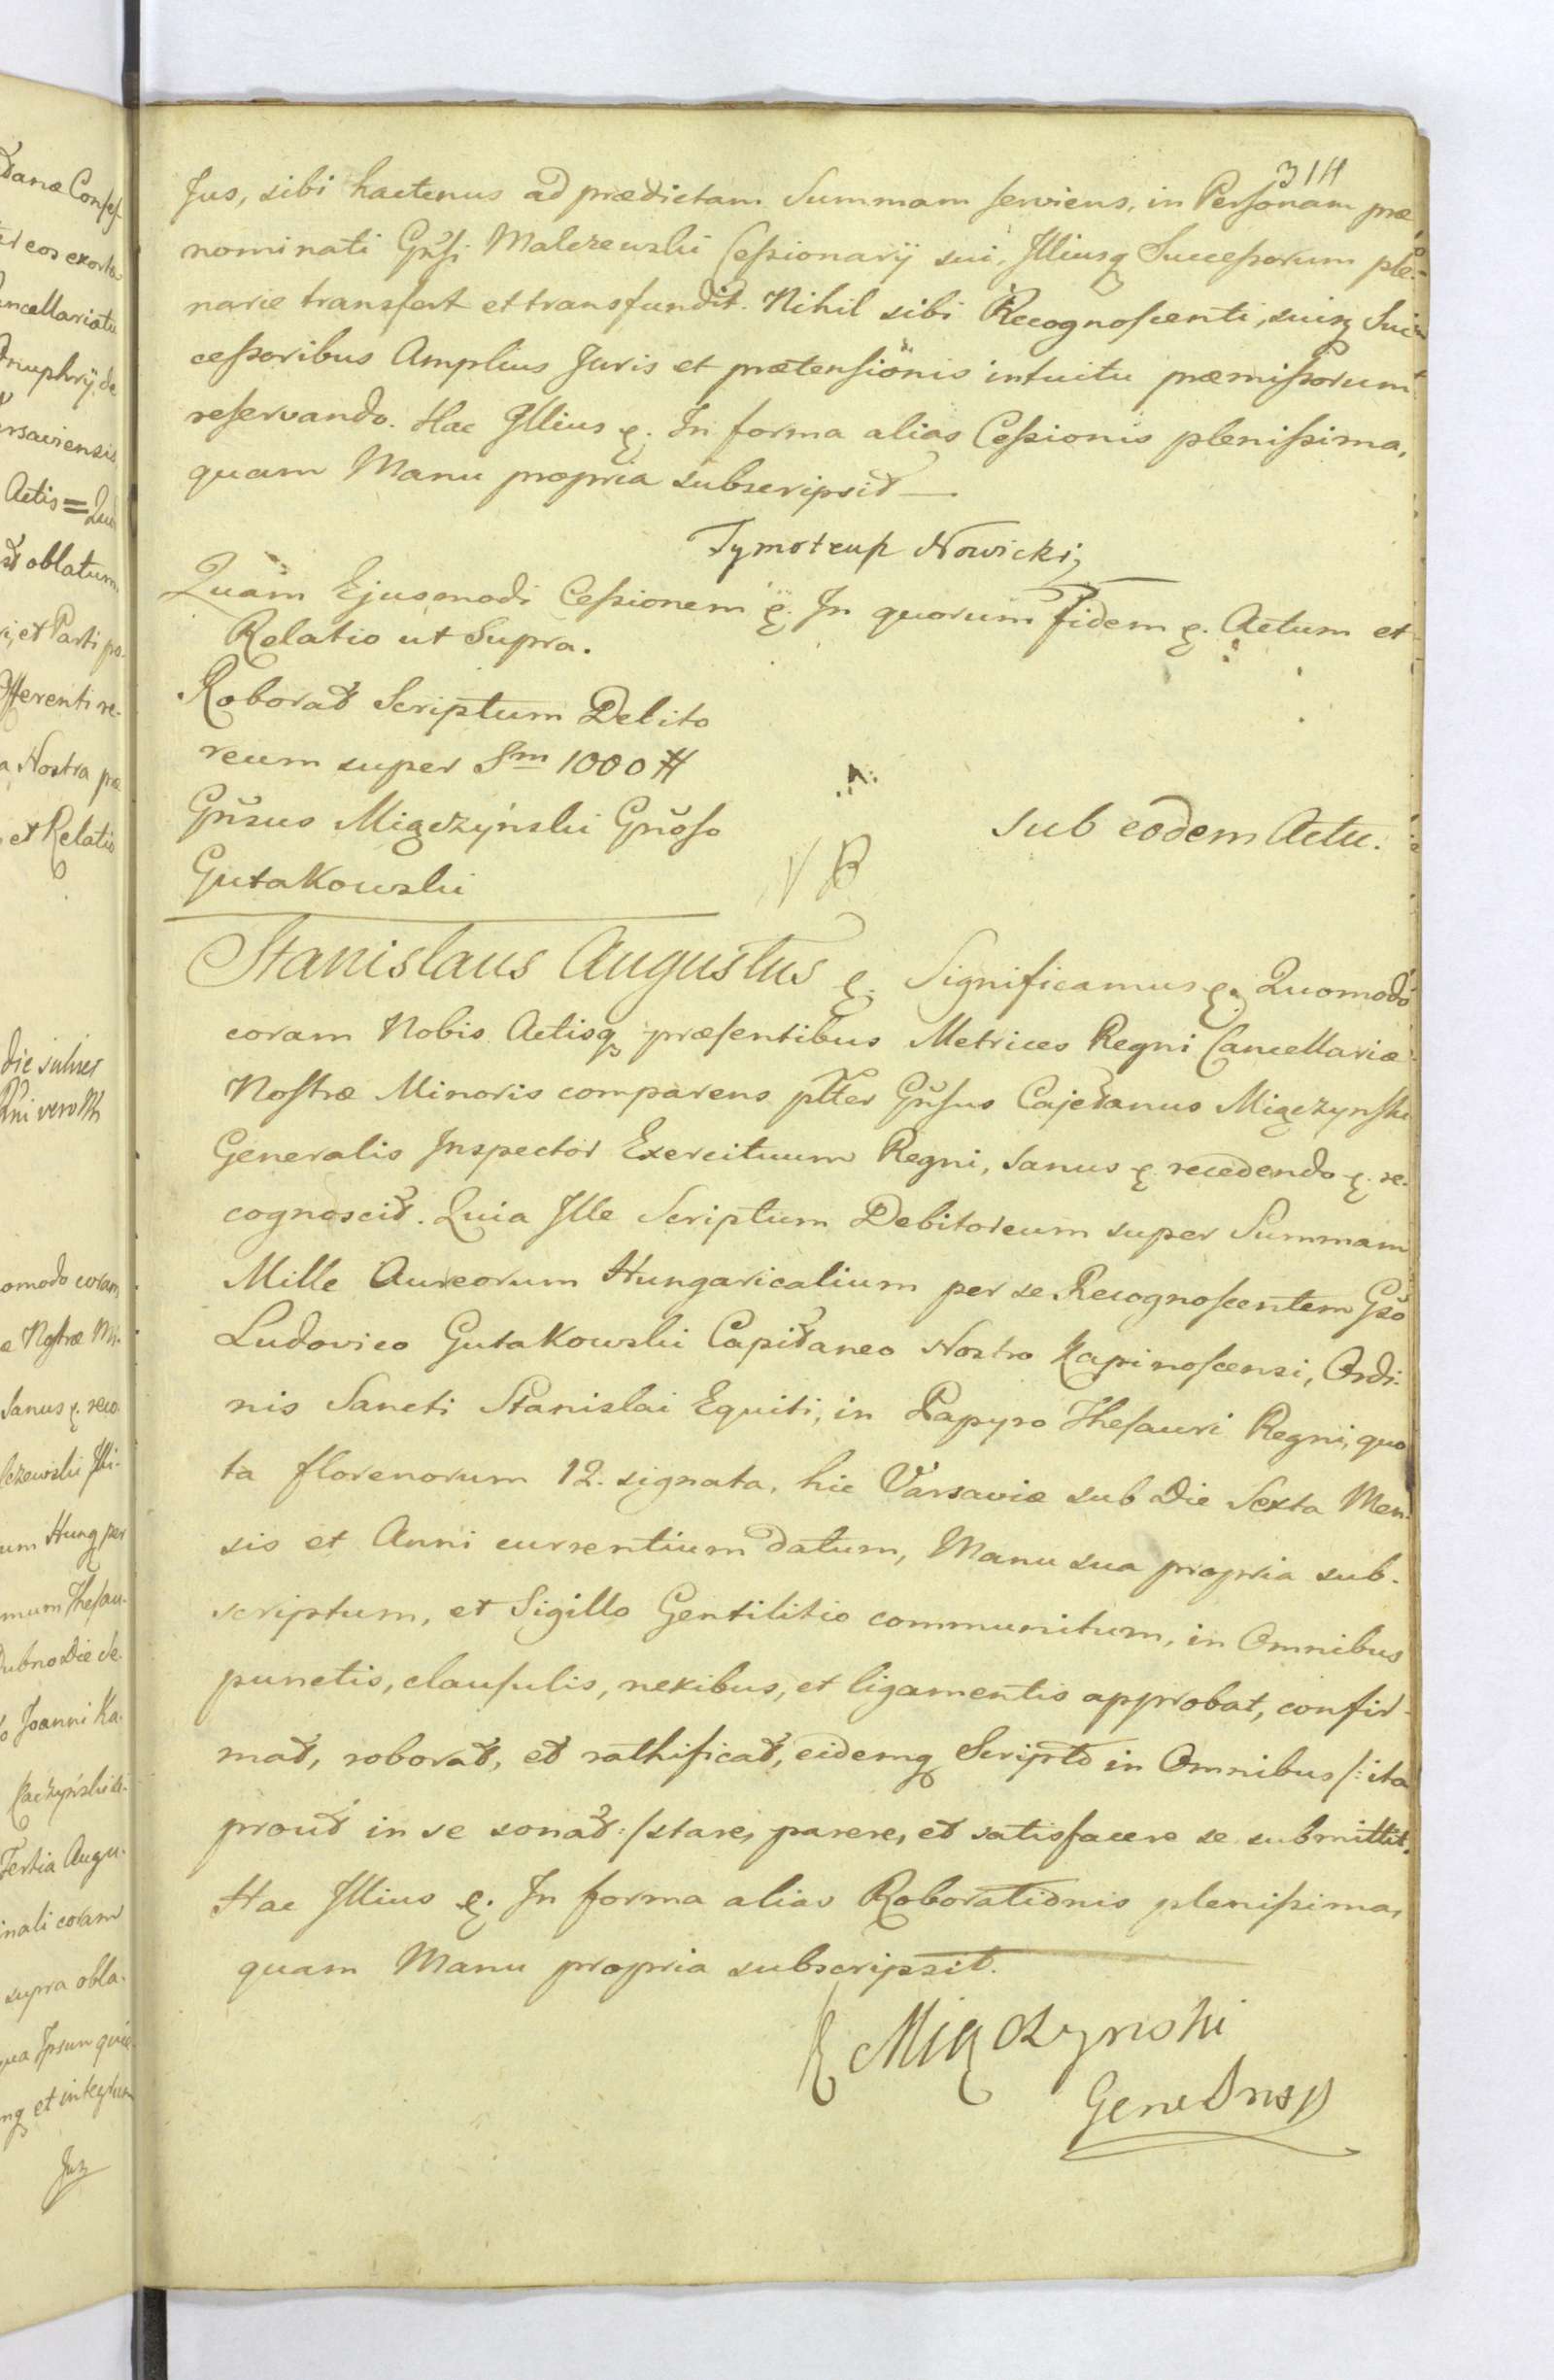 314
Jus, sibi hactenus ad prædictam Summam serviens, in Personam præ
nominati Gnsi Malczewski Cessionarÿ sui, Illiusq Successorum ple-
narie transfert et transfundit. Nihil sibi Recognoscenti, suisq Suc
cessoribus Amplius Juris et prætensionis intuitu præmissorum
reservando. Hac Illius &. In forma alias Cessionis plenissima,
quam Manu propria subscripsit —
Tymoteusz Nowicki
Quam Ejusmodi Cessionem &. In quorum Fidem &. Actum et
Relatio ut Supra.
Roborat Scriptum Debito
reum super Sm 1000 #
Gnsus Miączyński Gnoso
Gutakowski
NB
sub eodem Actu.
Stanislaus Augustus &. Significamus &. Quomodo
coram Nobis Actisq præsentibus Metrices Regni Cancellariæ
Nostræ Minoris comparens pltter Gnsus Cajetanus Miączynski
Generalis Inspector Exercituum Regni, sanus &. recedendo &. re-
cognoscit. Quia Ille Scriptum Debitoreum super Summam
Mille Aureorum Hungaricalium per se Recognoscentem Gso
Ludovico Gutakowski Capitaneo Nostro Kapinoscensi, Ordi-
nis Sancti Stanislai Equiti, in Papyro Thesauri Regni, quo
ta florenorum 12. signata, hic Varsaviæ sub Die Sexta Men-
sis et Anni currentium datum, Manu sua propria sub-
scriptum, et Sigillo Gentilitio communitum, in Omnibus
punctis, clausulis, nexibus, et ligamentis approbat, confir-
mat, roborat, et rathificat, eidemq Scripto in Omnibus /: ita
prout in se sonat :/ stare, parere, et satisfacere se submittit.
Hac Illius &. In forma alias Roborationis plenissima,
quam Manu propria subscripsit.
K Miączynski
Gene Insp